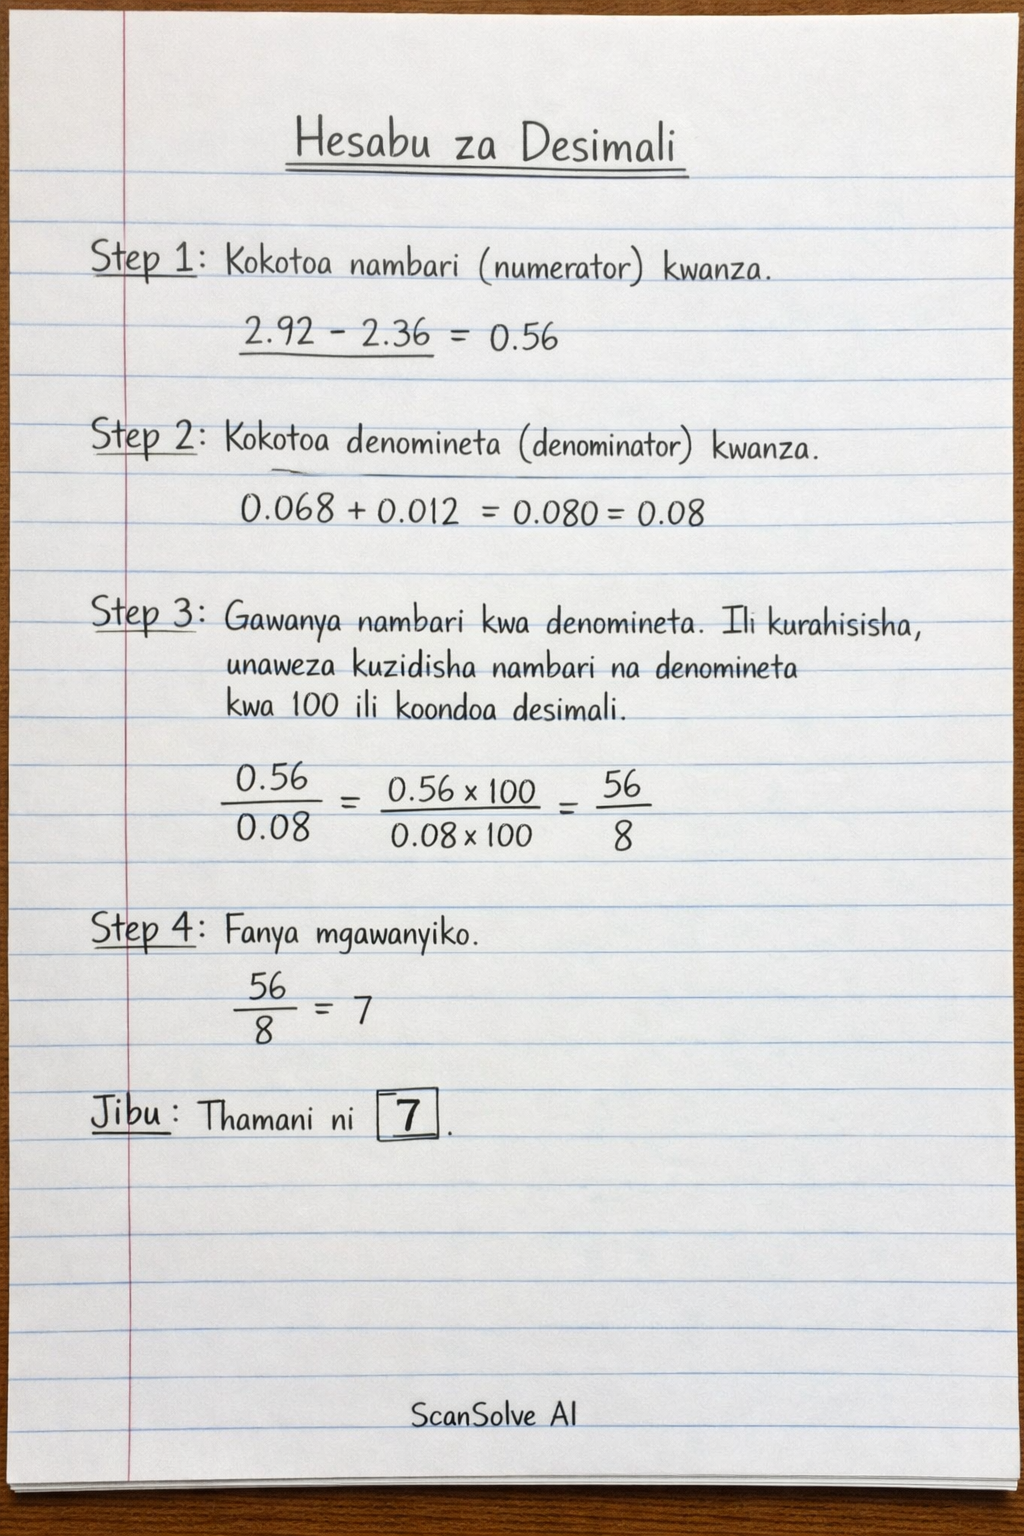 Hesabu za Desimali
Step 1: Kokotoa nambari (numerator) kwanza.
2.92 - 2.36 = 0.56
Step 2: Kokotoa denomineta (denominator) kwanza.
0.068 + 0.012 = 0.080 = 0.08
Step 3: Gawanya nambari kwa denomineta. Ili kurahisisha,
unaweza kuzidisha nambari na denomineta
kwa 100 ili koondoa desimali.
0.56/0.08 = 0.56 x 100/0.08 x 100 = 56/8
Step 4: Fanya mgawanyiko.
56/8 = 7
Jibu: Thamani ni 7.
ScanSolve AI